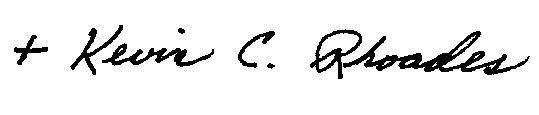 + Kevin C. Rhoades